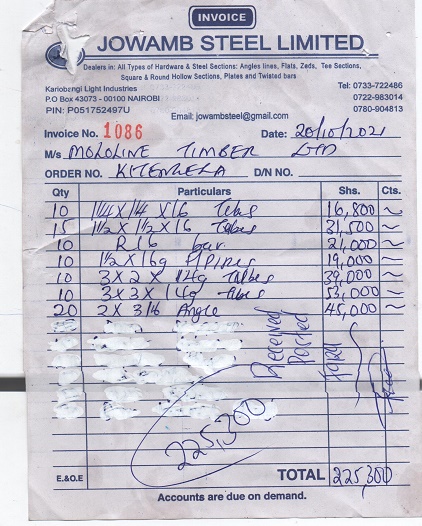 INVOICE
JOWAMB STEEL LIMITED
Dealers in: All Types of Hardware & Steel Sections: Angles lines, Flats, Zeds, Tee Sections,
Square & Round Hollow Sections, Plates and Twisted bars
Kariobangi Light Industries
P.O Box 43073 - 00100 NAIROBI
PIN: P051752497U
Tel: 0733-722486
0722-983014
0780-904813
Email: jowambsteel@gmail.com
Invoice No. 1086 Date: 20/10/2021
M/s MOLOLINE TIMBER LTD
ORDER NO. KITENGELA D/N NO.
Qty Particulars Shs. Cts.
10 1¼ X 1¼ X 16 Tubes 16,800 ~
15 1½ X 1½ X 16 Tubes 31,500 ~
10 R16 bar 21,000 ~
10 1½ X 16g P/Pipes 19,000 ~
10 3 X 2 X 14g Tubes 39,000 ~
10 3 X 3 X 14g Tubes 53,000 ~
20 2 X 3/16 Angle 45,000 ~
Received
Posted
225,300
E.&O.E TOTAL 225,300
Accounts are due on demand.